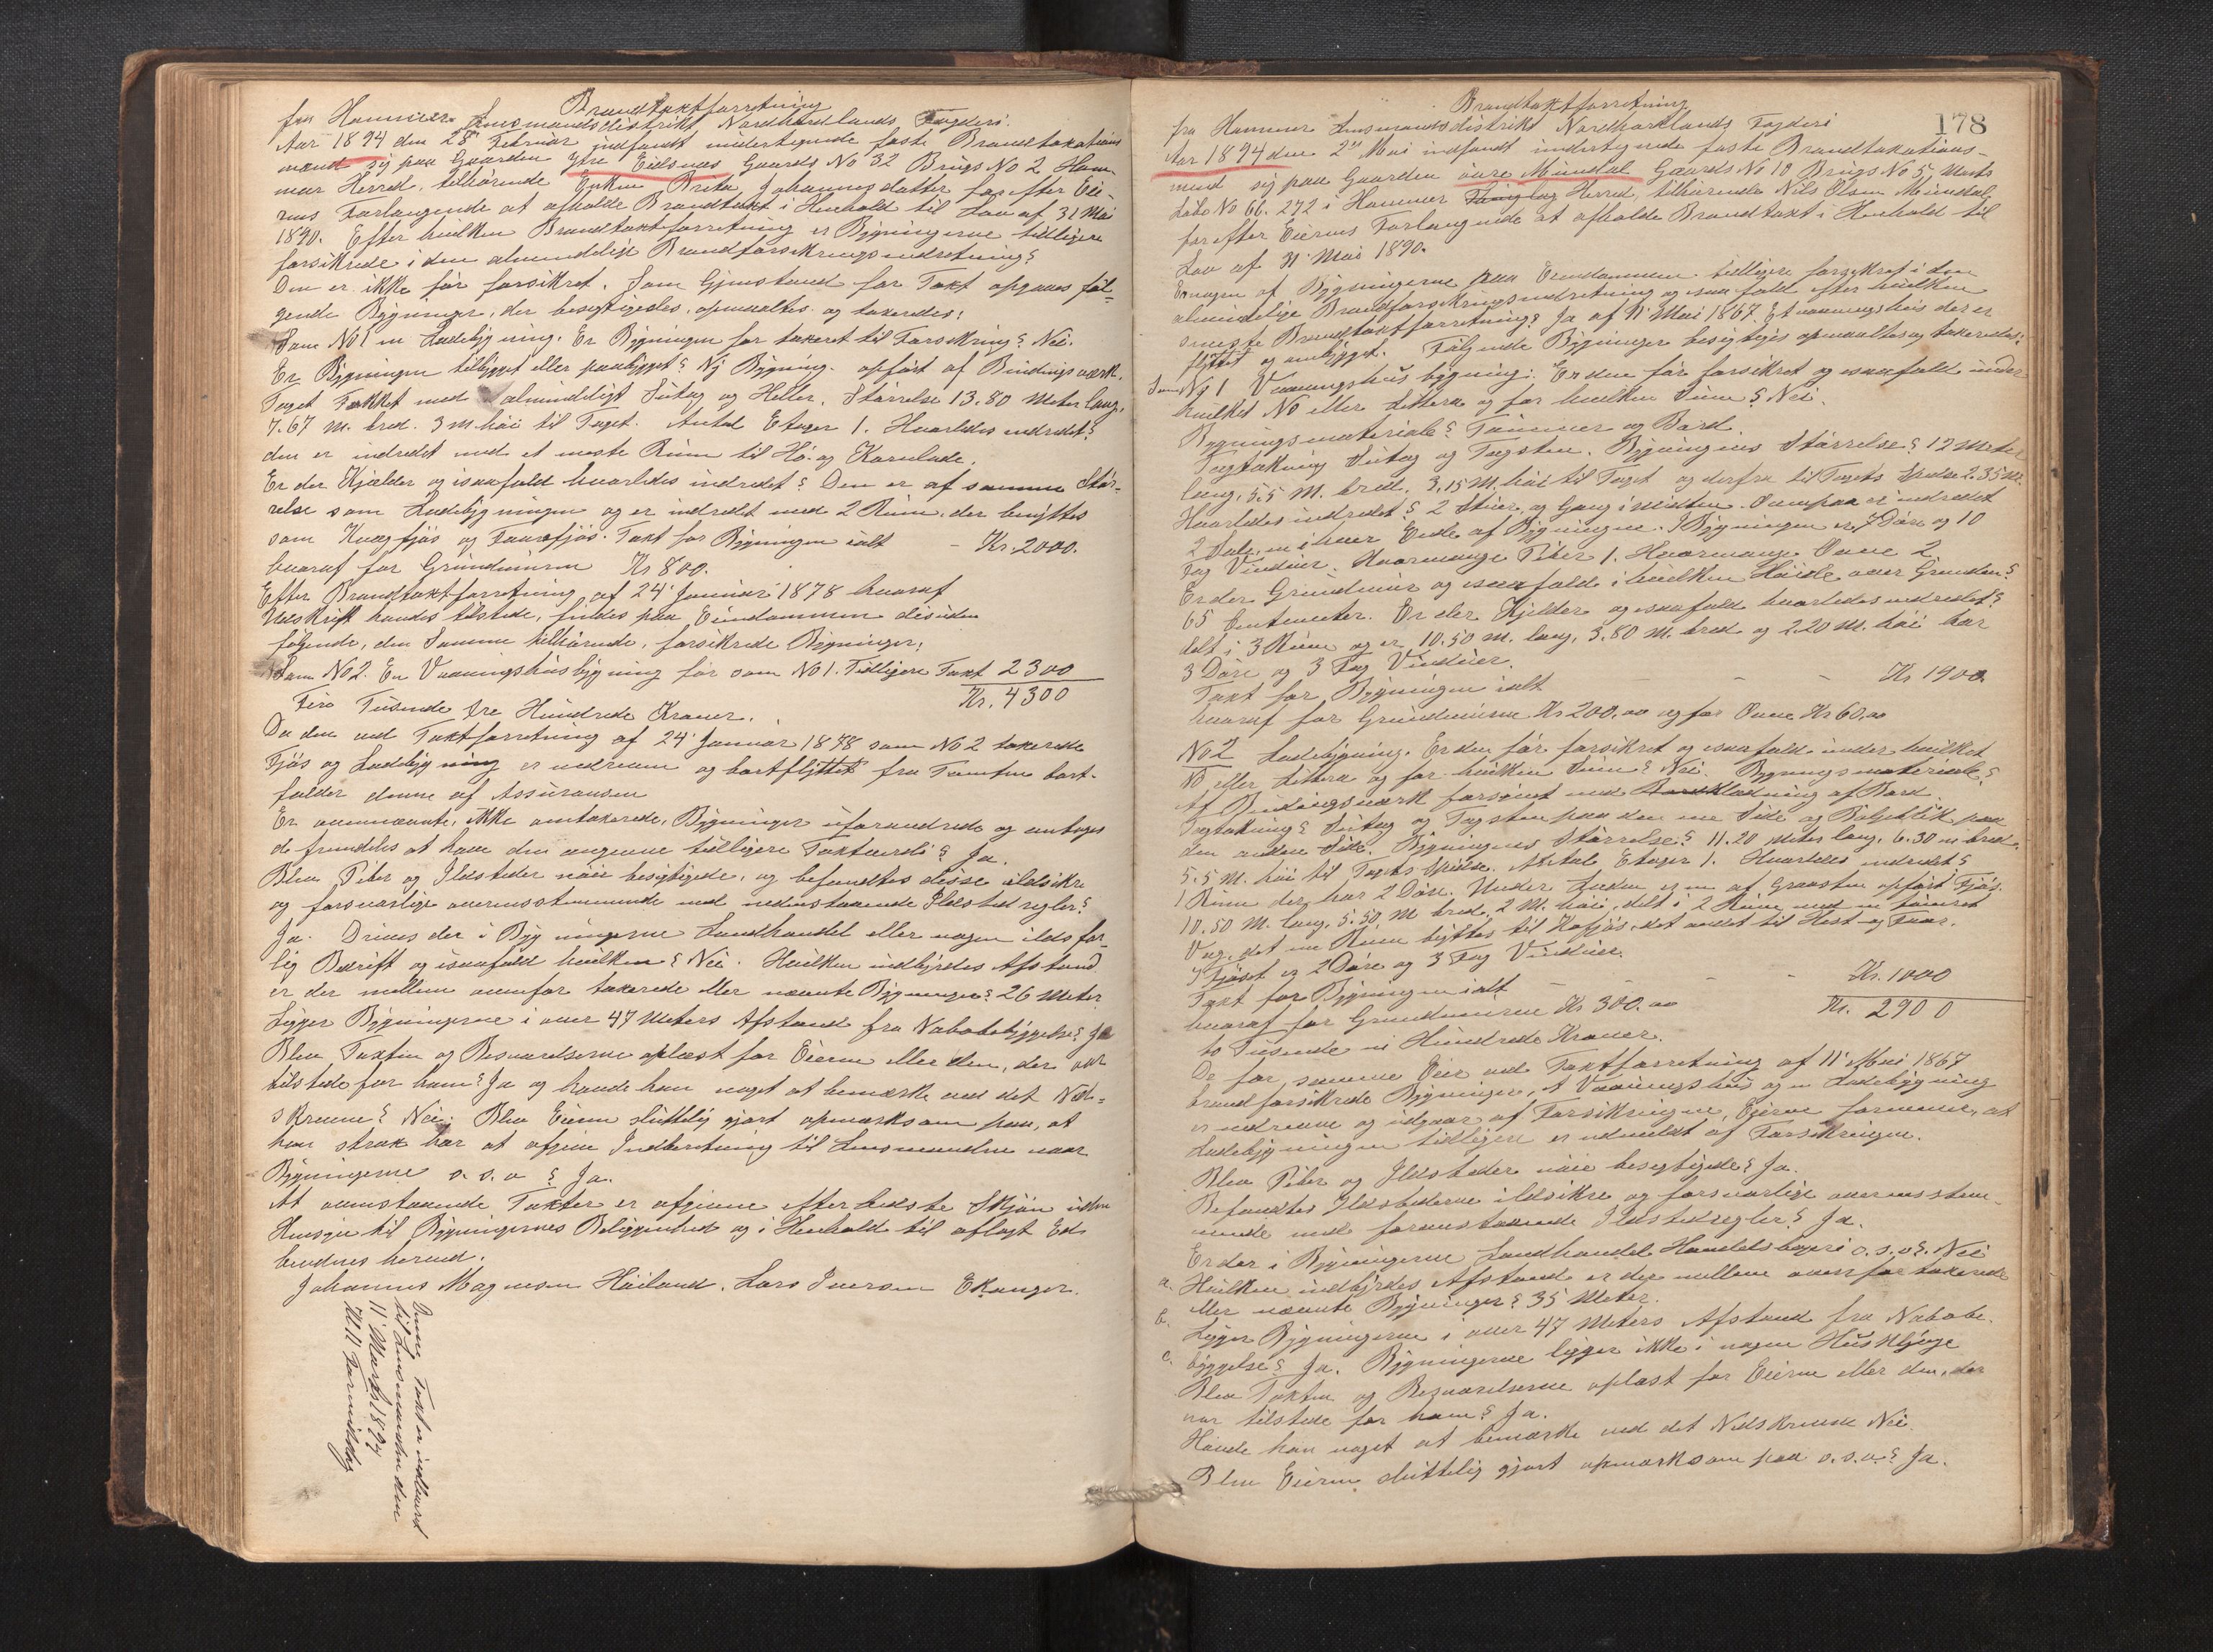 Brandtaktforretning
fra Hammer Lensmandsdistrikt Nordhordlands Fogderi.
Aar 1894 den 28' Februar indfandt undertegnede faste Brandtakations
mænd sig paa Gaarden Ytre Eidsnæs Gaards No 32 Brugs No 2 Ham-
mer Herred, tilhörende Enken Brita Johannesdatter for efter Eie-
rens Forlangende at afholde Brandtakt i Henhold til Lov af 31 Mai
1890. Efter hvilken Brandtaktforretning er Bygningerne tidligere
forsikrede i den almindelige Brandforsikringsindretning?
Den er ikke för forsikret. Som Gjenstand for Takt opgaves föl-
gende Bygninger, der besigtigedes, opmaaltes og takeredes:
Som No 1 en Ladebygning. Er Bygningen för takeret til Forsikring? Nei.
Er Bygningen tilbygget eller paabygget? Ny Bygning. opfört af Bindingsværk.
Taget Tækket med almindeligt Sutag og Heller. Störrelse 13.80 Meter lang,
7.67 M. bred. 3 M höi til Taget. Antal Etager 1. Hvorledes indredet?
den er indredet med et meste Rum til Hö- og Kornlade.
Er der Kjælder og isaafald hvorledes indredet? Den er af samme Stör-
relse som Ladebygningen og er indredet med 2 Rum, der benyttes
som Kvægfjös og Faarefjös. Takt for Bygningen ialt - Kr. 2000.
hvoraf for Grundmuren Kr 800.
Efter Brandtaktforretning af 24' Januar 1878 hvoraf
Udskrift havdes tilstede, findes paa Eiendommen desuden
fölgende, den Samme tilhörende, forsikrede Bygninger:
Som No 2. En Vaaningshusbygning för som No 1. Tidligere Takt 2300
Kr. 4300
Fire Tusende tre Hundrede Kroner.
Da den ved Taktforretning af 24' Januar 1878 som No 2 takerede
Fjös og Ladebygning er nedreven og bortflyttet fra Tomten bort-
falder denne af Assuransen
Er ovennævnte, ikke omtakerede, Bygninger uforandrede og antages
de fremdeles at have den angivne tidligere Taktværdi? Ja.
Blev Piber og Ildsteder nöie besigtigede, og befandtes disse ildsikre
og forsvarlige overensstemmende med nedenstaaende Ildstedregler?
Ja. Drives der i Bygningerne Landhandel eller nogen ildsfar-
lig Bedrift og isaafald hvilken? Nei. Hvilken indbyrdes Afstand
er der mellem ovenfor takerede eller nævnte Bygninger? 26 Meter
Ligger Bygningerne i over 47 Meters Afstand fra Nabobebyggelse? Ja
Blev Takten og Besvarelserne oplæst for Eieren eller den, der var
tilstede for ham? Ja og havde han noget at bemærke ved det Ned-
skrevne? Nei. Blev Eieren sluttelig gjort opmærksom paa, at
han strax har at afgive Indberetning til Lensmanden naar
Bygningerne o.s.v? Ja.
At ovenstaaende Takter er afgivne efter bedste Skjön uden
Hensyn til Bygningernes Beliggenhed og i Henhold til aflagt Ed
bevidnes herved.
Johannes Magnesen Höiland. Lars Iversen Ekanger.
Denne Takt er indleveret
til Lensmanden den
11' Marts 1894

Brandtaktforretning
178
fra Hammer Lensmandsdistrikt Nordhordlands Fogderi
Aar 1894 den 2' Mai indfandt undertegnede faste Brandtakations-
mænd sig paa Gaarden övre Mundal Gaards No 10 Brugs No 5, Marts
Löbe No 66. 272 i Hammer Tinglag Herred, tilhörende Nils Olsen Mundal
for efter Eierens Forlangende at afholde Brandtakt i Henhold til
Lov af 31' Mai 1890.
Er nogen af Bygningerne paa Eiendommen tidligere forsikret i den
almindelige Brandforsikringsindretning og isaafald efter hvilken
seneste Brandtaktforretning? Ja af 11' Mai 1867. Et vaaningshus der er
flyttet og ombygget. Fölgende Bygninger besigtiges opmaaltes og takeredes:
Som No 1 Vaaningshusbygning. Er den för forsikret og isaafald under
hvilket No eller Littera og for hvilken Sum? Nei.
Bygningsmateriale? Tömmer og Bord.
Tagtækning Sutag og Tagsten. Bygningens Störrelse? 12 Meter
lang, 5.5 M. bred. 3,15 M. höi til Taget og derfra til Tagets Spidse 2.35 M.
Hvorledes indredet? 2 Stuer og Gang i midten. Ovenpaa er indredet
2 Sale, en i hver Ende af Bygningen. I Bygningen er 7 Döre og 10
Fag Vinduer. Hvormange Piber 1. Hvormange Ovne 2.
Er der Grundmur og isaafald i hvilken Höide over Grunden?
65 Centimeter. Er der Kjelder og isaafald hvorledes indredet?
delt i 3 Rum og er 10.50 M. lang, 3.80 M. bred og 2.20 M. höi har
3 Döre og 3 Fag Vinduer.
Takt for Bygningen ialt - - - Kr 1900.
hvoraf for Grundmuren Kr 200,00 og for Ovne Kr 60,00
No 2 Ladebygning. Er den för forsikret og isaafald under hvilket
No eller Littera og for hvilken Sum? Nei. Bygningsmateriale?
Af Bindingsværk forsynet med Bordklædning af Bord.
Tagtækning? Sutag og Tagsten paa den ene Side og Bölgeblik paa
den anden Side. Bygningens Störrelse? 11.20 Meter lang, 6.30 m bred.
5.5 M. höi til Tagets Spidse. Antal Etager 1. Hvorledes indredet?
1 Rum der har 2 Döre. Under Laden er en af Graasten opfört Fjös.
10.50 M. lang, 5.50 M bred, 2 M. höi, delt i 2 Rum med en tömret
Væg, det ene Rum byttes til Kofjös, det andet til Hest og Faar.
I Fjöset er 2 Döre og 3 Fag Vinduer.
Takt for Bygningen ialt - - - Kr. 1000
hvoraf for Grundmuren Kr 300.00 Kr. 2900
to Tusende ni Hundrede Kroner.
De for samme Eier ved Taktforretning af 11' Mai 1867
brandforsikrede Bygninger, et Vaaningshus og en Ladebygning
er nedrevne og udgaar af Forsikringen, Eieren formener, at
Ladebygningen tidligere er udmeldt af Forsikringen.
Blev Piber og Ildsteder nöie besigtigede? Ja.
Befandtes Ildstederne ildsikre og forsvarlige overensstem-
mende med foranstaaende Ildstedregler? Ja.
Er der i Bygningerne Landhandel Handelsbageri o.s.v? Nei
a. Hvilken indbyrdes Afstand er der mellem ovenfor takerede
eller nævnte Bygninger? 35 Meter.
b. Ligger Bygningerne i over 47 Meters Afstand fra Nabobe-
c. byggelse? Ja. Bygningerne ligger ikke i nogen Husklynge
Blev Takten og Besvarelserne oplæst for Eieren eller den, der
var tilstede for ham? Ja.
Havde han noget at bemærke ved det Nedskrevne Nei.
Blev Eieren sluttelig gjort opmærksom paa o.s.v.? Ja.